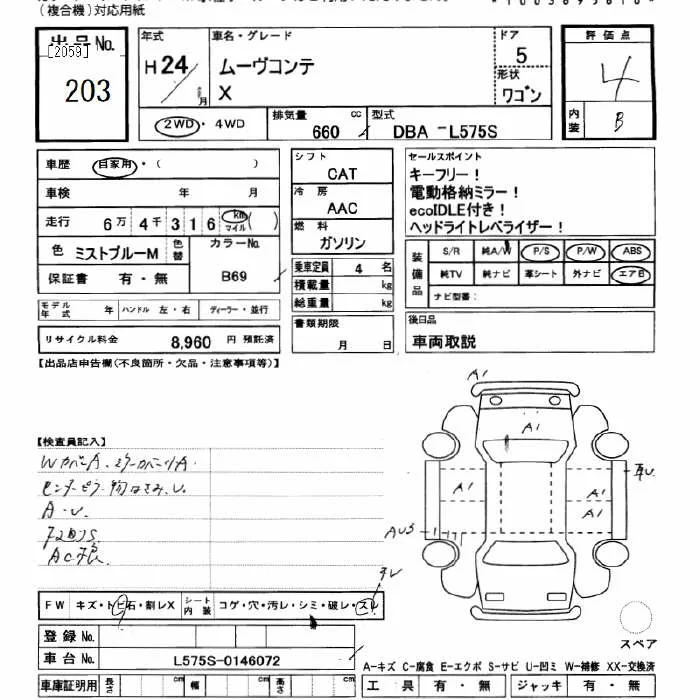 （複合機）対応用紙
出品No.
[2059]
203
年式
H24
月
車名・グレード
ムーヴコンテ
X
ドア
5
形状
ワゴン
評価点
4
内装
B
2WD・4WD
排気量
660
cc
型式
DBA -L575S
車歴 自家用・（ ）
車検 年 月
走行 6万 4千 3 1 6 km マイル ( )
色 ミストブルーM 色替
カラーNo.
B69
保証書 有・無
モデル年式 年 ハンドル 左・右 ディーラー・並行
リサイクル料金 8,960 円 預託済
シフト
CAT
冷房
AAC
燃料
ガソリン
乗車定員 4 名
積載量 kg
総重量 kg
書類期限
月 日
セールスポイント
キーフリー！
電動格納ミラー！
ecoIDLE付き！
ヘッドライトレベライザー！
装備品
S/R 純A/W P/S P/W ABS
純TV 純ナビ 革シート 外ナビ エアB
ナビ型番：
後日品
車両取説
【出品店申告欄(不良箇所・欠品・注意事項等)】
【検査員記入】
A・U.
A1
A1
A1
A1
A1
FW キズ・トビ石・割レX シート内装 コゲ・穴・汚レ・シミ・破レ・スレ
登録No.
車台No. L575S-0146072
車庫証明用 長さ cm 幅 cm 高さ cm
スペア
A-キズ C-腐食 E-エクボ S-サビ U-凹ミ W-補修 XX-交換済
工具 有・無 ジャッキ 有・無